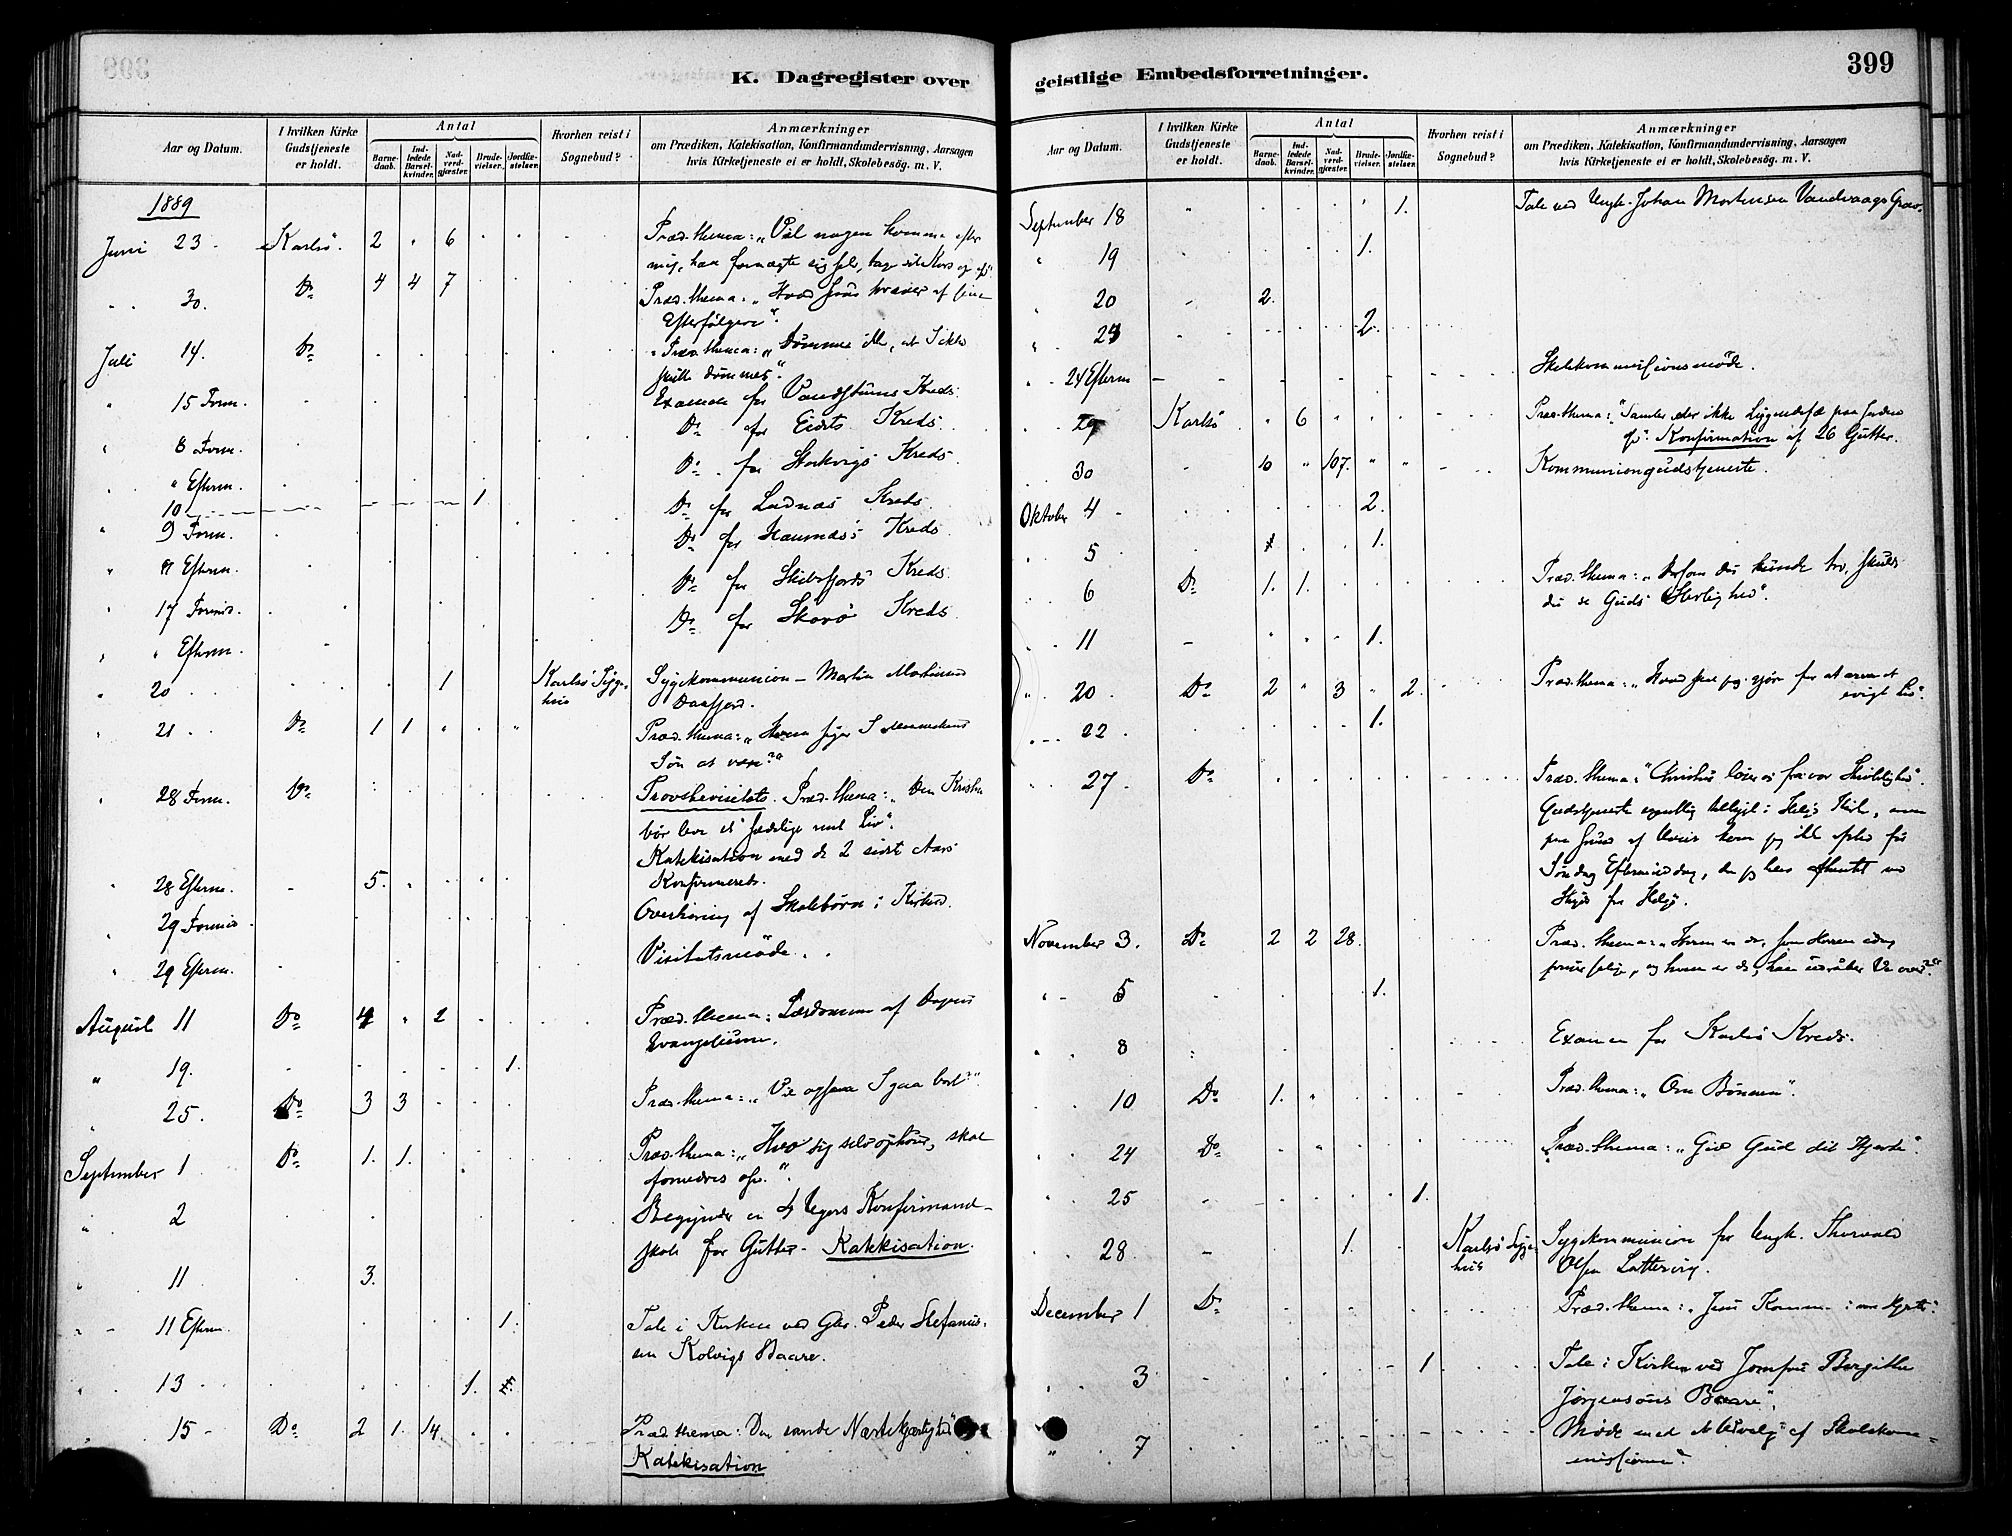 399
K. Dagregister over
Aar og Datum.
I hvilken Kirke Gudstjeneste er holdt.
Antal
Barnedaab.
Indledede Barselkvinder.
Nadverdgjæster.
Brudevielser.
Jordfæstelser.
Hvorhen reist i Sognebud?
Anmærkninger
om Prædiken, Katekisation, Konfirmandundervisning, Aarsagen
hvis Kirketjeneste ei er holdt, Skolebesög. m. V.
1889
Juni 23. Karlsö. 2 " 6 Præd. thema: "Vil nogen komme efter
mig, han fornegte sig selv, tage sit Kors og
" 30. Do 4 4 7 Præd. thema: "Hvad Jesus kræver af sine
Efterfølgere".
Juli 14. Do Præd. thema: "Dømmer ikke, at I ikke
skulle dømmes".
" 15 Form. Examen for Vandstuens Kreds.
" 8 Form. Do for Eidets Kreds.
" " Efterm. Do for Storkvigs Kreds.
10 1. Do for Ladnæs Kreds
" 9 Form. Do for Haumæs's Kreds.
" Efterm. Do for Skibsfjords Kreds.
" 17 Formid. Do for Skorö Kreds.
" " Efterm.
" 20 1 Karlsö Sygehus Sygekommunion – Martin Martinus
Daafjord.
" 21 Do 1 1 Præd. thema: "Hvem siger I Menneskens
Søn at være?"
" 28 Form. Do Provstevisitats. Præd. thema: "Den Kristne
bør leve et Liv".
Katekisation med de 2 sidste Aars
Konfirmerede.
" 28 Efterm. 5. Overhøring af Skolebørn i Kirken.
" 29 Formid. Visitatsmøde.
" 29 Efterm.
August 11 Do 4 " 2 Præd. thema: Lærdommen af Dagens
Evangelium.
" 19. 1.
" 25. Do 3 3 Præd. thema: "Vil ogsaa I gaa bort?".
September 1 Do 1. 1. Præd. thema: "Hvo sig selv ophøier, skal
fornedres osv.".
" 2 Begynder en 4 Ugers Konfirmand-
skole for Gutter. Katekisation.
" 11 3.
" 11 Efterm. 1. Tale i Kirken ved Gbr. Peder Stefanus-
sen Kolvigs Baare.
" 13 1.
" 15 Do 2 1. 14. Præd. thema: Den sande Næstekjærlighed"
Katekisation
geistlige Embedsforretninger.
399
Aar og Datum.
I hvilken Kirke Gudstjeneste er holdt.
Antal
Barnedaab.
Indledede Barselkvinder.
Nadverdgjæster.
Brudevielser.
Jordfæstelser.
Hvorhen reist i Sognebud?
Anmærkninger
om Prædiken, Katekisation, Konfirmandundervisning, Aarsagen
hvis Kirketjeneste ei er holdt, Skolebesög. m. V.
September 18 1. Tale ved Ungk. Johan Mortensen Vandvaags Grav.
" 19 1.
" 20 2.
" 2
" 24 Efterm Skolekommissionsmöde.
29 Karlsö " 6 Præd. thema: "Samler eder ikke Liggendefæ paa Jorden
osv". Konfirmation af 26 Gutter.
30 10 " 107. Kommuniongudstjeneste.
Oktober 4 2.
" 5 1.
" 6 Do 1. 1. Præd. thema: "Dersom du kunde tro, skulde
du se Guds Herlighed".
11 1.
" 20 Do 2 " 3 " 2. Præd. thema: "Hvad skal jeg gjøre for at arve et
evigt Liv".
" 22 1.
" 27 Do Præd. thema: "Christus løser os fra vor
Gudstjeneste egentlig tillyst i Helgö Kirke, men
paa Grund af Uveir kom jeg ikke afsted før
Søndag Eftermiddag, da jeg blev afhentet ved
Skyds fra Helgö.
November 3. Do 2 2 28. Præd. thema: "Hvem er de, som Herren idag
priser salige, og hvem er de, han udraaber Ve over?"
" 5 1.
" 8 Examen for Karlsö Kreds.
" 10 Do 1. " Præd. thema: "Om Bönnen".
" 24 Do Præd. thema: "Giv Gud dit Hjerte".
" 25 1.
28 1. Karlsö Sygehus Sygekommunion for Ungk. Thorvald
Olsen Lattervig.
December 1 Do Præd. thema: "Jesu Komme i vore Hjerter".
" 3 1 Tale i Kirken ved Jomfru Bergithe
Jørgensens Baare.
" 7 Møde med et Udvalg af Skolekom-
missionen.